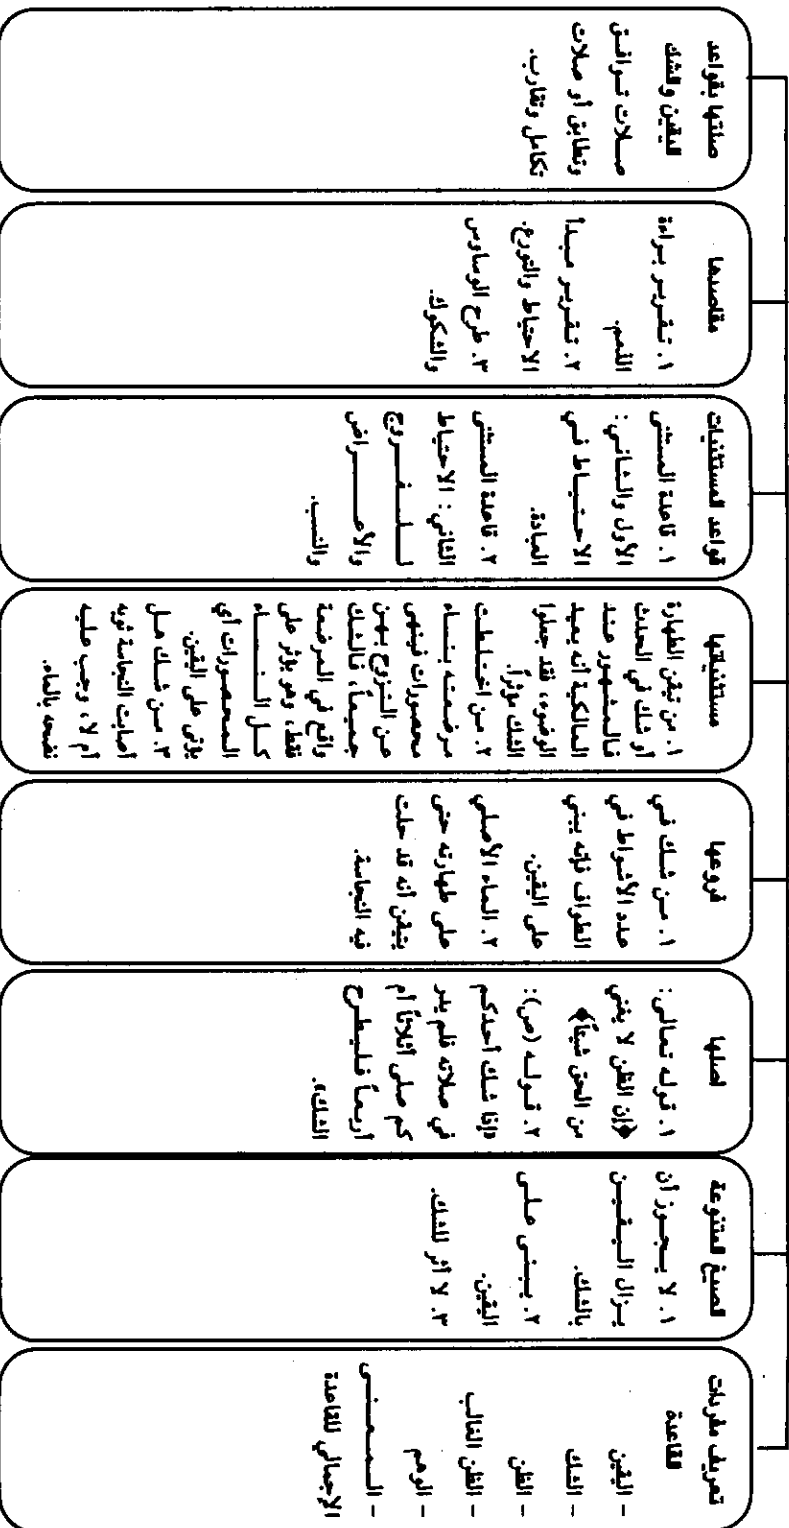 تعريف مفردات
القاعدة
- اليقين
- الشك
- الظن
- الظن الغالب
- الوهم
- الـمـعـنـى
الإجمالي للقاعدة
الصيغ المتنوعة
١. لا يـجـوز أن
يـزال الـيـقـيـن
بالشك.
٢. يـبـنـى عـلـى
اليقين.
٣. لا أثر للشك.
أصلها
١. قوله تعالى:
﴿إن الظن لا يغني
من الحق شيئاً﴾
٢. قولـه (ص):
«إذا شك أحدكم
في صلاته فلم يدر
كم صلى أثلاثاً أم
أربعـاً فلـيـطـرح
الشك».
فروعها
١. مـن شـك فـي
عدد الأشواط في
الطواف فإنه يبني
على اليقين.
٢. الماء الأصلي
على طهارته حتى
يتيقن أنه قد حلت
فيه النجاسة.
مستثنياتها
١. من تيقن الطهارة
أو شك في الحدث
فالـمـشـهـور عـنـد
المالكية أنه يعيد
الوضوء، فقد جعلوا
الشك مؤثراً.
٢. من اختـلطت
مرضعته بنـسـاء
محصورات فينهى
عن التزوج بهـن
جميعـاً، فالـشك
واقع في المرضعة
فقط، وهو يؤثر على
كـل الـنـسـاء
الـمـحـصـورات أي
يؤثر على اليقين.
٣. مـن شـك هـل
أصابت النجاسة ثوبه
أم لا، وجب عليـه
نضحه بالماء.
قواعد المستثنيات
١. قاعدة المستثنى
الأول والثاني:
الاحـتـيـاط فـي
العبادة.
٢. قاعدة المستثنى
الثاني: الاحتياط
لـلـفـروج
والأعـراض
والنسب.
مقاصدها
١. تـقـريـر بـراءة
الذمم.
٢. تـقـريـر مـبـدأ
الاحتياط والتورع.
٣. طرح الوساوس
والشكوك.
صلتها بقواعد
اليقين والشك
صـلات تـوافـق
وتطابق أو صلات
تكامل وتقارب.